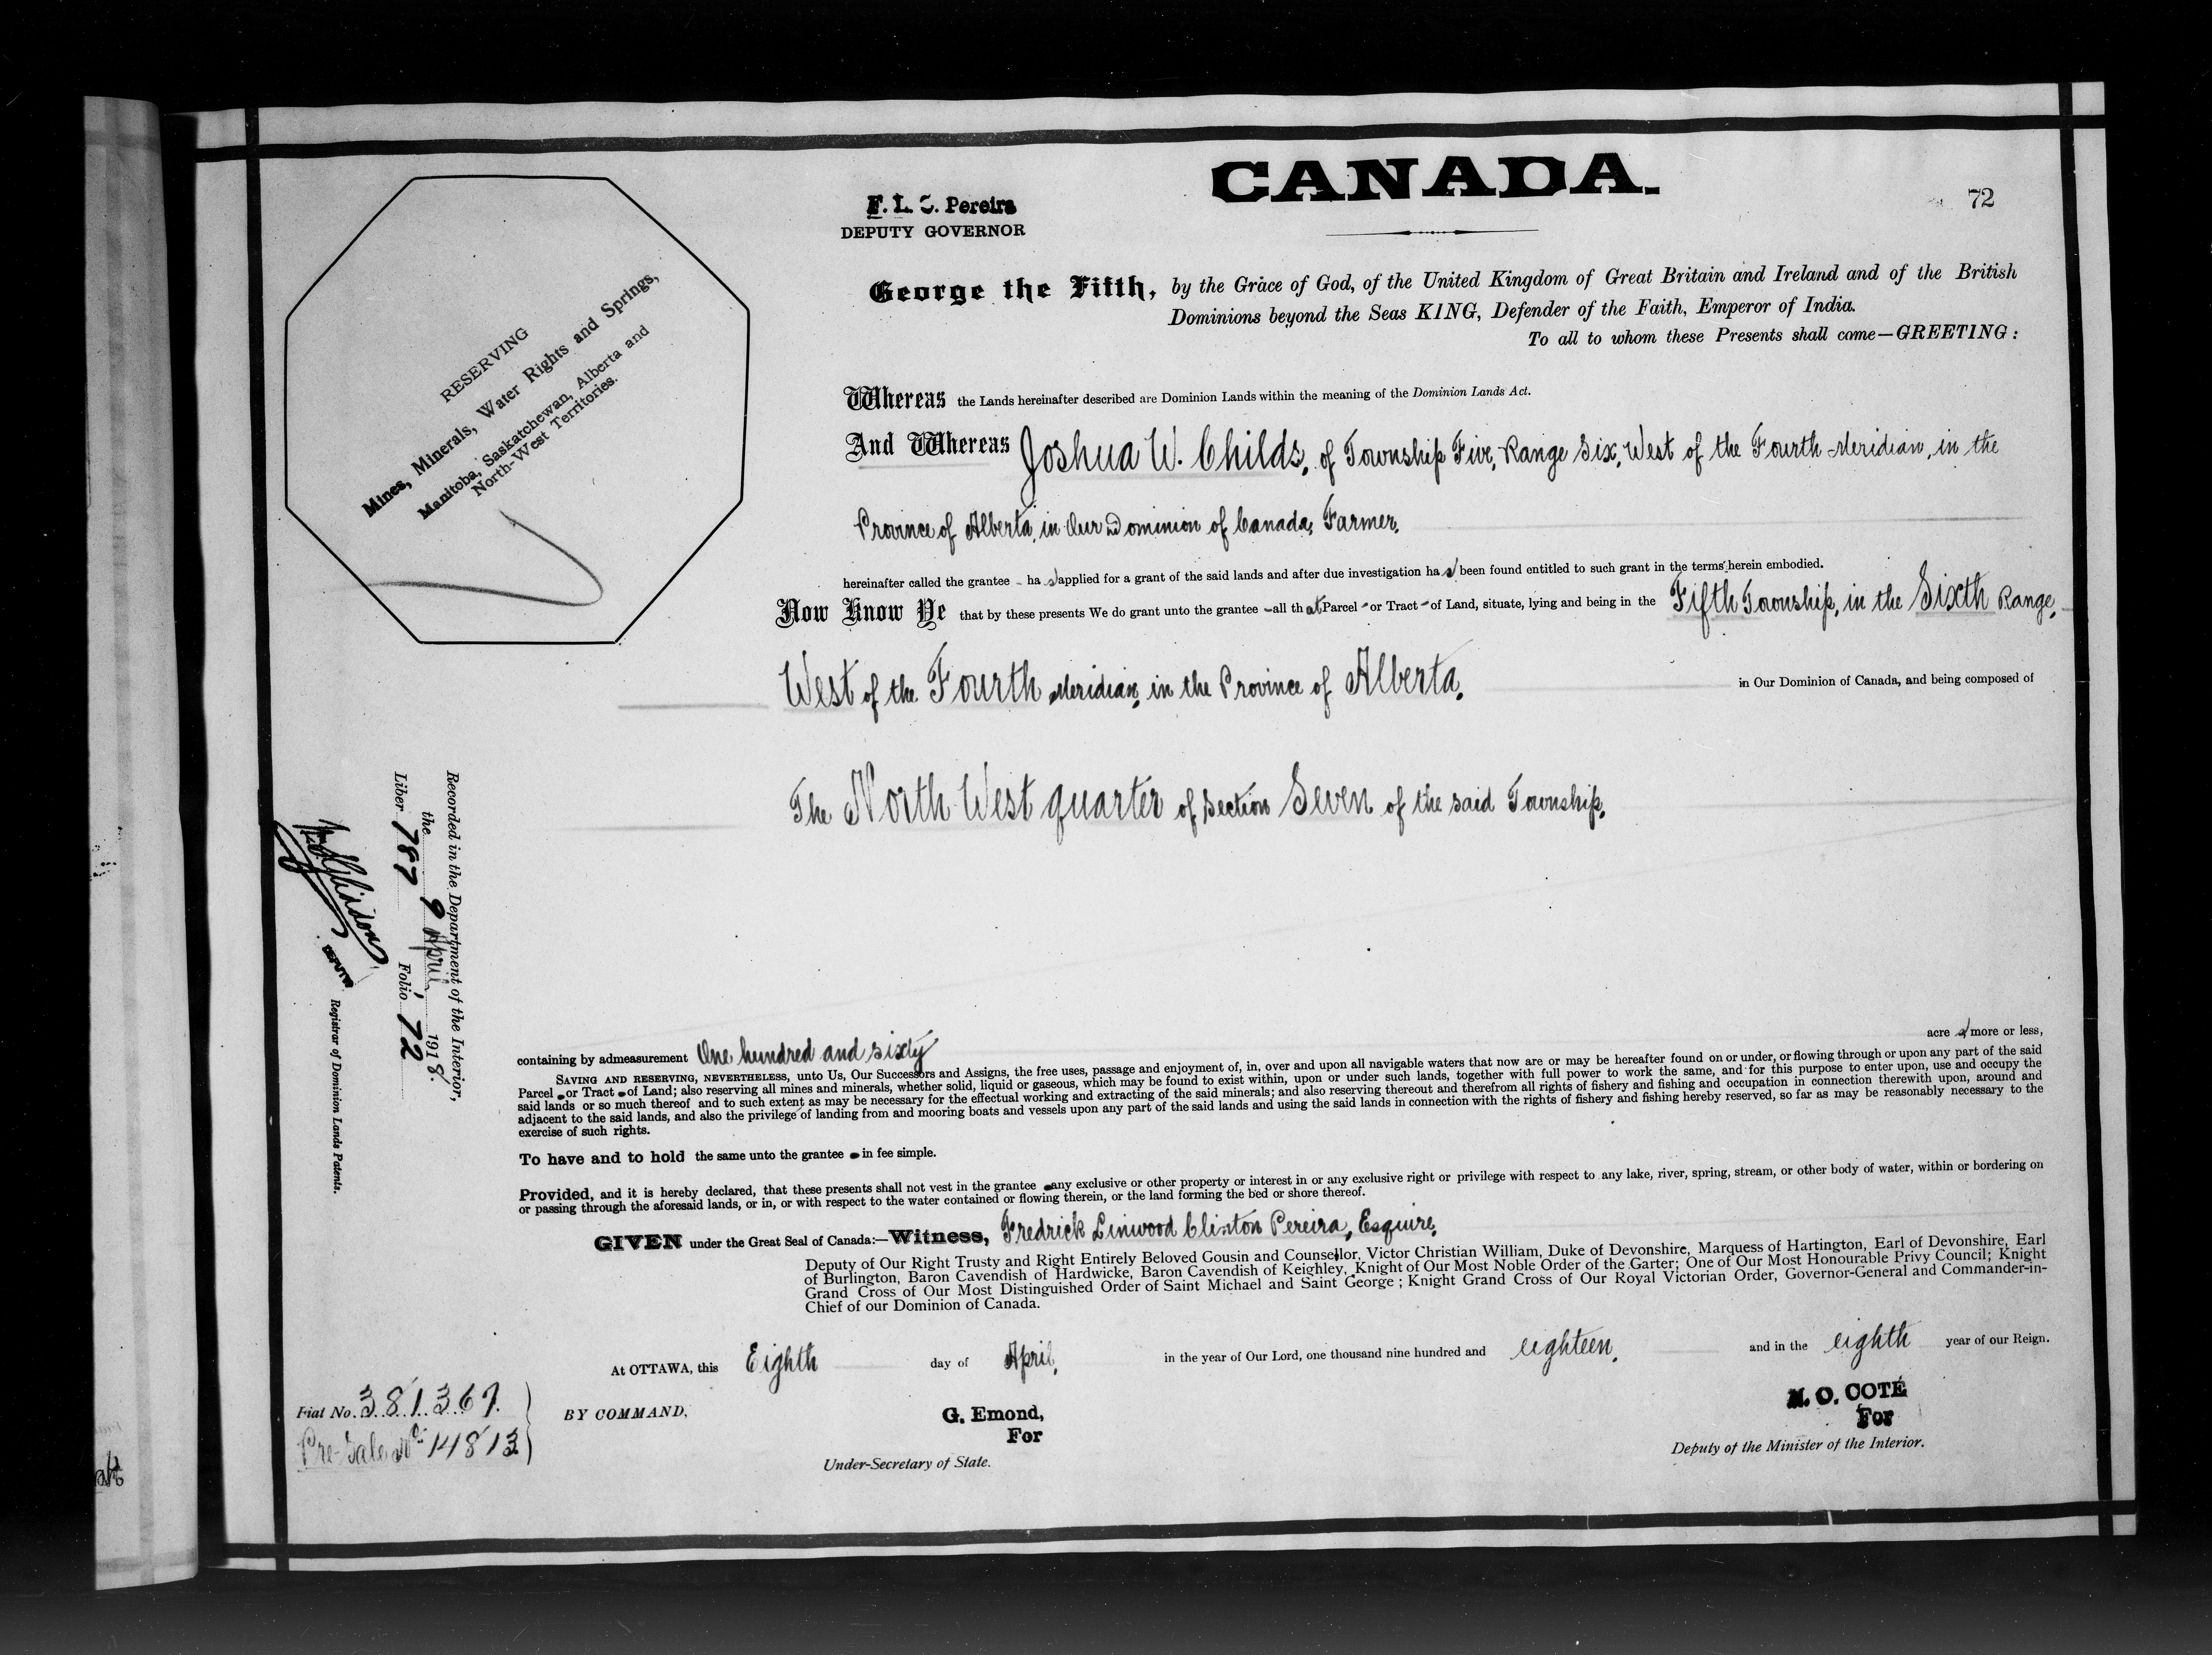 CANADA.
72
F. L. C. Pereira
DEPUTY GOVERNOR
George the Fifth, by the Grace of God, of the United Kingdom of Great Britain and Ireland and of the British
Dominions beyond the Seas KING, Defender of the Faith, Emperor of India.
To all to whom these Presents shall come—GREETING:
RESERVING
Mines, Minerals, Water Rights and Springs,
Manitoba, Saskatchewan, Alberta and
North-West Territories.
Whereas the Lands hereinafter described are Dominion Lands within the meaning of the Dominion Lands Act.
And Whereas Joshua W. Childs, of Township Five, Range Six, West of the Fourth Meridian, in the
Province of Alberta, in Our Dominion of Canada, Farmer,
hereinafter called the grantee - has applied for a grant of the said lands and after due investigation has been found entitled to such grant in the terms herein embodied.
Now Know Ye that by these presents We do grant unto the grantee - all that Parcel - or Tract - of Land, situate, lying and being in the Fifth Township, in the Sixth Range,
West of the Fourth Meridian, in the Province of Alberta, in Our Dominion of Canada, and being composed of
The North West quarter of Section Seven of the said Township,
Recorded in the Department of the Interior,
the 9 April, 1918.
Liber 787 Folio 72
DEPUTY Registrar of Dominion Lands Patents.
containing by admeasurement One hundred and sixty acres more or less,
SAVING AND RESERVING, NEVERTHELESS, unto Us, Our Successors and Assigns, the free uses, passage and enjoyment of, in, over and upon all navigable waters that now are or may be hereafter found on or under, or flowing through or upon any part of the said
Parcel or Tract of Land; also reserving all mines and minerals, whether solid, liquid or gaseous, which may be found to exist within, upon or under such lands, together with full power to work the same, and for this purpose to enter upon, use and occupy the
said lands or so much thereof and to such extent as may be necessary for the effectual working and extracting of the said minerals; and also reserving thereout and therefrom all rights of fishery and fishing and occupation in connection therewith upon, around and
adjacent to the said lands, and also the privilege of landing from and mooring boats and vessels upon any part of the said lands and using the said lands in connection with the rights of fishery and fishing hereby reserved, so far as may be reasonably necessary to the
exercise of such rights.
To have and to hold the same unto the grantee in fee simple.
Provided, and it is hereby declared, that these presents shall not vest in the grantee any exclusive or other property or interest in or any exclusive right or privilege with respect to any lake, river, spring, stream, or other body of water, within or bordering on
or passing through the aforesaid lands, or in, or with respect to the water contained or flowing therein, or the land forming the bed or shore thereof.
GIVEN under the Great Seal of Canada:—Witness, Fredrick Linwood Clinton Pereira, Esquire,
Deputy of Our Right Trusty and Right Entirely Beloved Gousin and Counsellor, Victor Christian William, Duke of Devonshire, Marquess of Hartington, Earl of Devonshire, Earl
of Burlington, Baron Cavendish of Hardwicke, Baron Cavendish of Keighley, Knight of Our Most Noble Order of the Garter; One of Our Most Honourable Privy Council; Knight
Grand Cross of Our Most Distinguished Order of Saint Michael and Saint George; Knight Grand Cross of Our Royal Victorian Order, Governor-General and Commander-in-
Chief of our Dominion of Canada.
At OTTAWA, this Eighth day of April, in the year of Our Lord, one thousand nine hundred and eighteen, and in the eighth year of our Reign.
Fiat No. 381367.
Pre-Sale No. 14813
BY COMMAND,
G. Emond,
For
Under-Secretary of State.
M. O. COTÉ
For
Deputy of the Minister of the Interior.